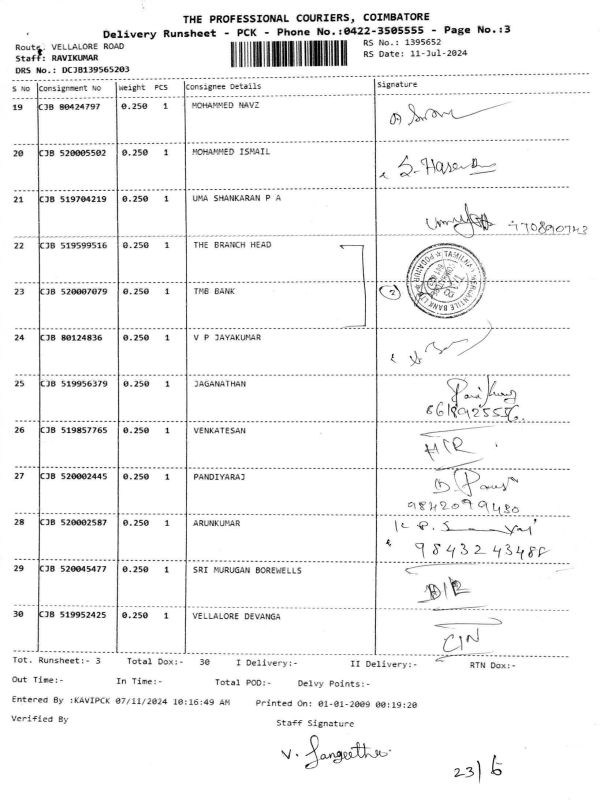 THE PROFESSIONAL COURIERS, COIMBATORE
Delivery Runsheet - PCK - Phone No.:0422-3505555 - Page No.:3
Route: VELLALORE ROAD RS No.: 1395652
Staff: RAVIKUMAR RS Date: 11-Jul-2024
DRS No.: DCJB139565203
S No Consignment No Weight PCS Consignee Details Signature
19 CJB 80424797 0.250 1 MOHAMMED NAVZ
20 CJB 520005502 0.250 1 MOHAMMED ISMAIL
21 CJB 519704219 0.250 1 UMA SHANKARAN P A
22 CJB 519599516 0.250 1 THE BRANCH HEAD
23 CJB 520007079 0.250 1 TMB BANK 2
24 CJB 80124836 0.250 1 V P JAYAKUMAR
25 CJB 519956379 0.250 1 JAGANATHAN
26 CJB 519857765 0.250 1 VENKATESAN
27 CJB 520002445 0.250 1 PANDIYARAJ
9842099480
28 CJB 520002587 0.250 1 ARUNKUMAR
9843243488
29 CJB 520045477 0.250 1 SRI MURUGAN BOREWELLS
30 CJB 519952425 0.250 1 VELLALORE DEVANGA
Tot. Runsheet:- 3 Total Dox:- 30 I Delivery:- II Delivery:- RTN Dox:-
Out Time:- In Time:- Total POD:- Delvy Points:-
Entered By :KAVIPCK 07/11/2024 10:16:49 AM Printed On: 01-01-2009 00:19:20
Verified By Staff Signature
V. Sangeetha.
23/6